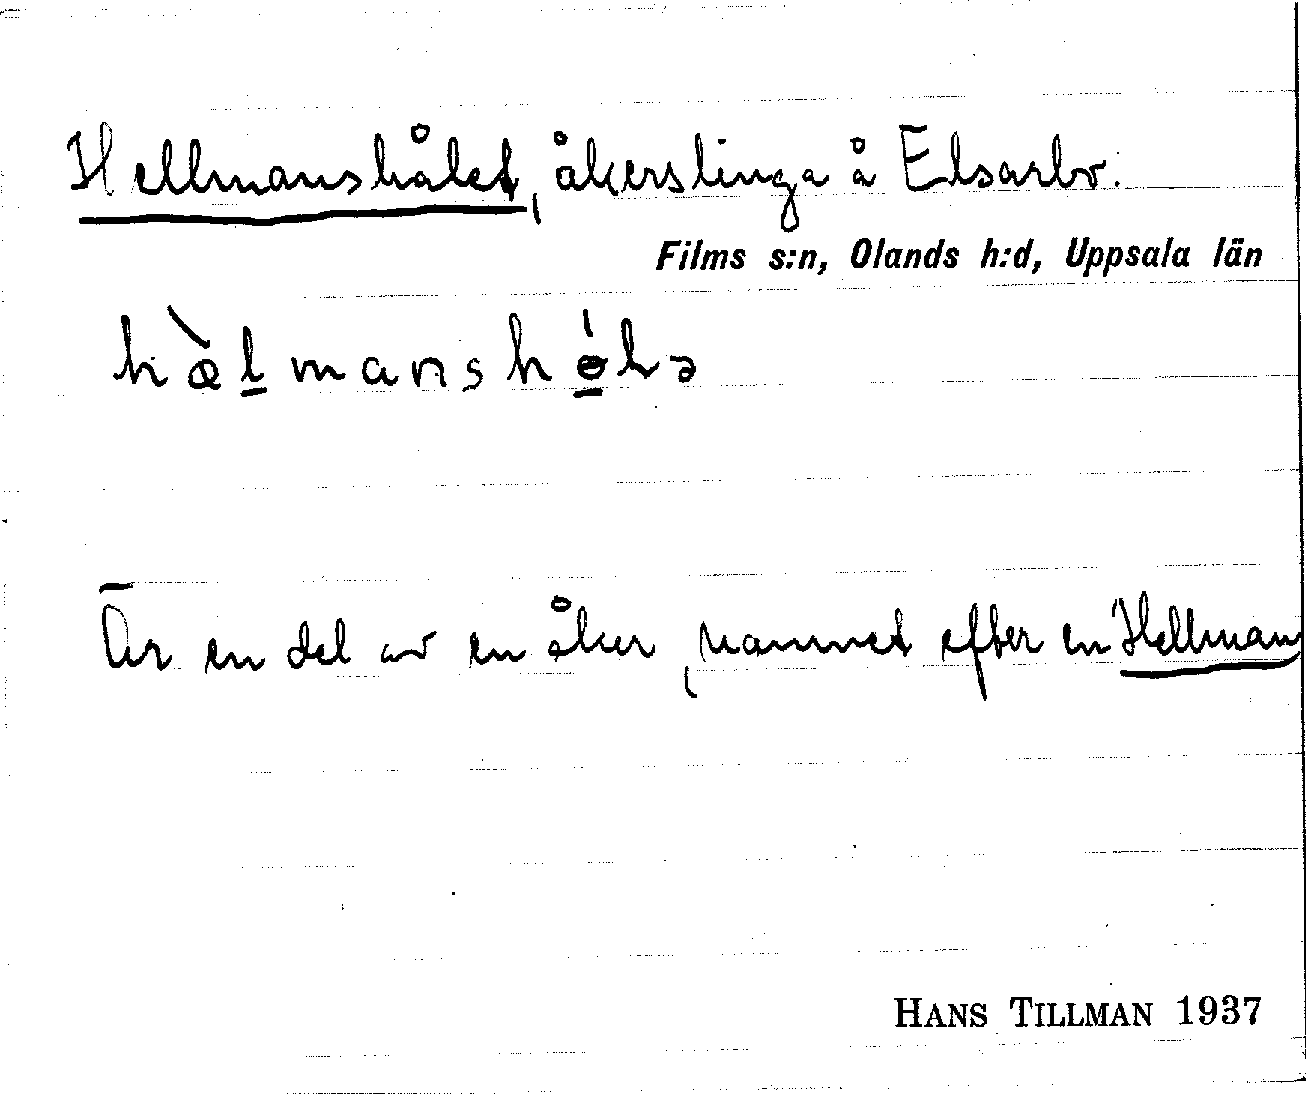 Hellmanshålet, åkerslinga å Elsarbo.
Films s:n, Olands h:d, Uppsala län
hæ̀lmanshó̱lə
Är en del av en åker, namnet efter en Hellman
HANS TILLMAN 1937